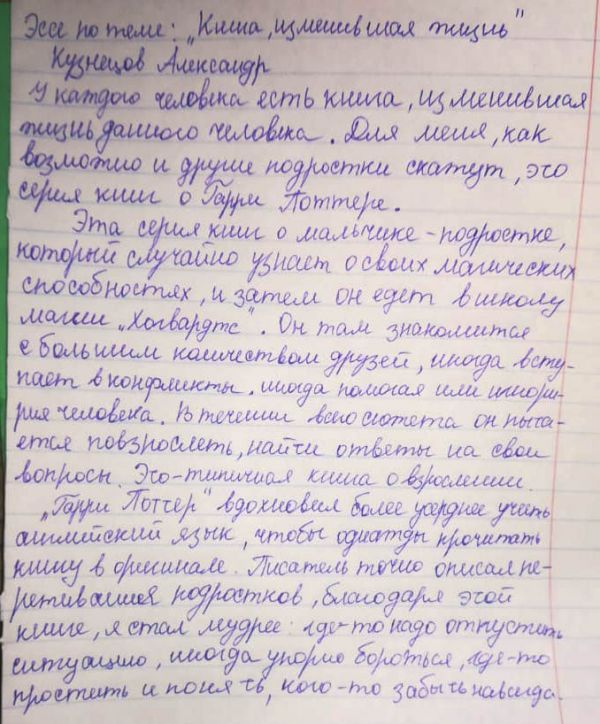 Эссе по теме: „Книга, изменившая жизнь"
Кузнецов Александр
У каждого человека есть книга, изменившая
жизнь данного человека. Для меня, как
возможно и другие подростки скажут, это
серия книг о Гарри Поттере.
Эта серия книг о мальчике-подростке,
который случайно узнает о своих магических
способностях, и затем он едет в школу
магии „Хогвардтс". Он там знакомится
с большим количеством друзей, иногда всту-
пает в конфликты, иногда помогая или игнори-
рия человека. В течении всего сюжета он пыта-
ется повзрослеть, найти ответы на свои
вопросы. Это-типичная книга о взрослении.
„Гарри Поттер" вдохновил более усерднее учить
английский язык, чтобы однажды прочитать
книгу в оригинале. Писатель точно описал пе-
реживания подростков, благодаря этой
книге, я стал мудрее: где-то надо отпустить
ситуацию, иногда упорно бороться, где-то
простить и понять, кого-то забыть навсегда.